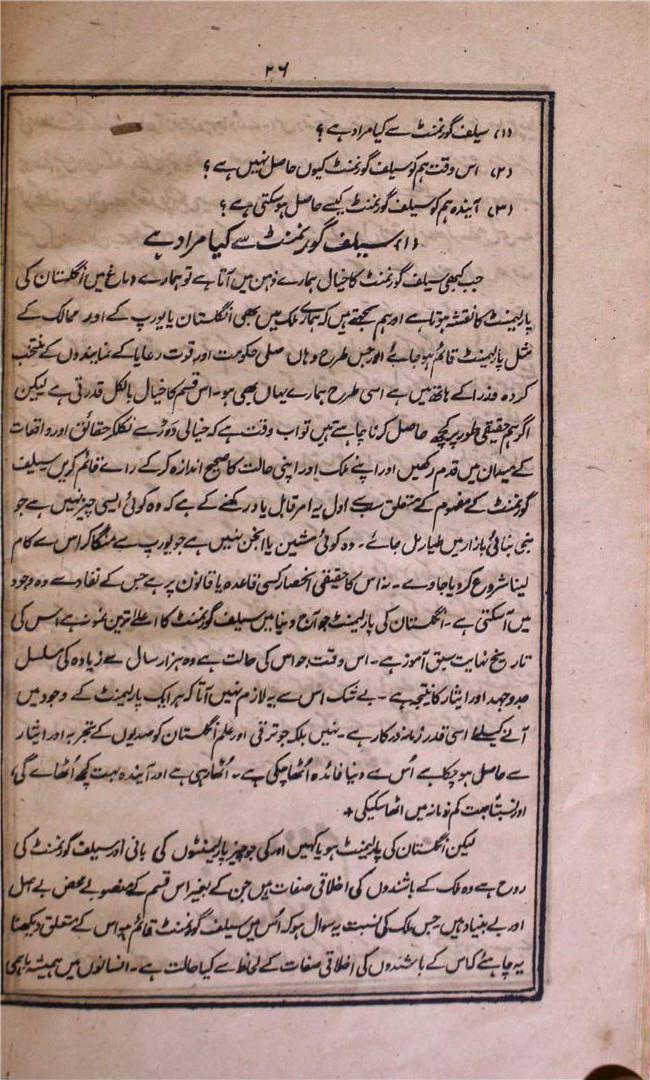 ۲۶
(۱) سیلف گورنمنٹ سے کیا مراد ہے؟
(۲) اس وقت ہم کو سیلف گورنمنٹ کیوں حاصل نہیں ہے؟
(۳) آیندہ ہم کو سیلف گورنمنٹ کیسے حاصل ہو سکتی ہے؟
(۱) سیلف گورنمنٹ سے کیا مراد ہے
جب کبھی سیلف گورنمنٹ کا خیال ہمارے ذہن میں آتا ہے تو ہمارے دماغ میں انگلستان کی
پارلیمنٹ کا نقشہ ہوتا ہے اور ہم سمجھتے ہیں کہ ہمارے ملک میں بھی انگلستان یا یورپ کے اور ممالک کے
مثل پارلیمنٹ قائم ہو جائے اور جس طرح وہاں اصلی حکومت اور قوت رعایا کے نمایندوں کے منتخب
کردہ وزرا کے ہاتھ میں ہے اسی طرح ہمارے یہاں بھی ہو۔ اس قسم کا خیال بالکل قدرتی ہے لیکن
اگر ہم حقیقی طور پر کچھ حاصل کرنا چاہتے ہیں تو اب وقت ہے کہ خیالی دوڑ سے نکلکر حقائق اور واقعات
کے میدان میں قدم رکھیں اور اپنے ملک اور اپنی حالت کا صحیح اندازہ کر کے رائے قائم کریں سیلف
گورنمنٹ کے مفہوم کے متعلق سب سے اول یہ امر قابل یاد رکھنے کے ہے کہ وہ کوئی ایسی چیز نہیں ہے جو
بنی بنائی بازار میں طیار مل جائے۔ وہ کوئی مشین یا انجن نہیں ہے جو یورپ سے منگا کر اس سے کام
لینا شروع کر دیا جاوے۔ نہ اس کا حقیقی انحصار کسی قاعدہ یا قانون پر ہے جس کے نفاذ سے وہ وجود
میں آسکتی ہے۔ انگلستان کی پارلیمنٹ جو آج دنیا میں سیلف گورنمنٹ کا اعلے ترین نمونہ ہے اس کی
تاریخ نہایت سبق آموز ہے۔ اس وقت جو اس کی حالت ہے وہ ہزار سال سے زیادہ کی مسلسل
جدوجہد اور ایثار کا نتیجہ ہے۔ بے شک اس سے یہ لازم نہیں آتا کہ ہر ایک پارلیمنٹ کے وجود میں
آنے کیلئے اسی قدر زمانہ درکار ہے۔ نہیں بلکہ جو ترقی اور علم انگلستان کو صدیوں کے تجربہ اور ایثار
سے حاصل ہو چکا ہے اُس سے دنیا فائدہ اُٹھا چکی ہے۔ اُٹھا رہی ہے اور آیندہ بہت کچھ اُٹھاے گی،
اور نسبتاً بہت کم زمانہ میں اٹھا سکیگی +
لیکن انگلستان کی پارلیمنٹ ہو یا کہیں اور کی جو چیز پارلیمنٹوں کی بانی اور سیلف گورنمنٹ کی
روح ہے وہ ملک کے باشندوں کی اخلاقی صفات ہیں جن کے بغیر اس قسم کے منصوبے محض بے اصل
اور بے بنیاد ہیں جس ملک کی نسبت یہ سوال ہو کہ اُس میں سیلف گورنمنٹ قائم ہو اس کے متعلق دیکھنا
یہ چاہئے کہ اس کے باشندوں کی اخلاقی صفات کے لحاظ سے کیا حالت ہے۔ انسانوں میں ہمیشہ باہمی